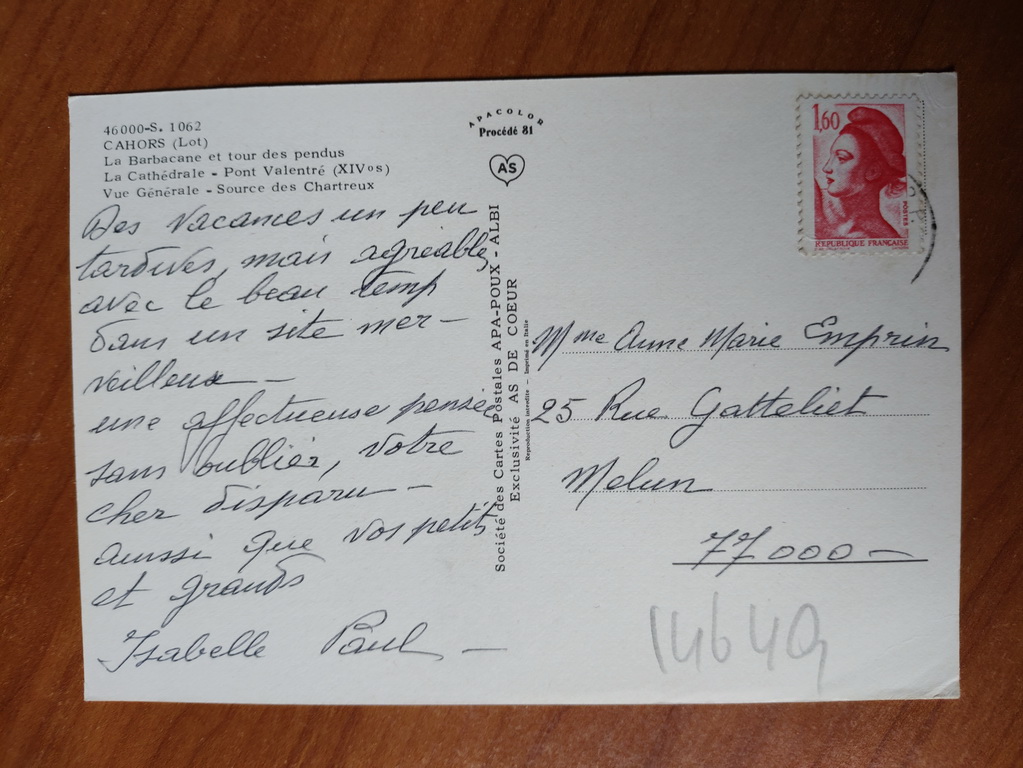 46000-S. 1062
CAHORS (Lot)
La Barbacane et tour des pendus
La Cathédrale - Pont Valentré (XIVos)
Vue Générale - Source des Chartreux
Des vacances un peu
tardives, mais agréables,
avec le beau temp
dans un site mer-
veilleux -
une affectueuse pensée
sans oublier, votre
cher disparu -
aussi que vos petits
et grands
Isabelle Paul -
APACOLOR
Procédé 81
AS
Société des Cartes Postales APA-POUX - ALBI
Exclusivité AS DE COEUR
Reproduction interdite - Imprimé en Italie
1,60
POSTES
REPUBLIQUE FRANÇAISE
Mme Anne Marie Emprin
25 Rue Gatteliet
Melun
77000 -
14649